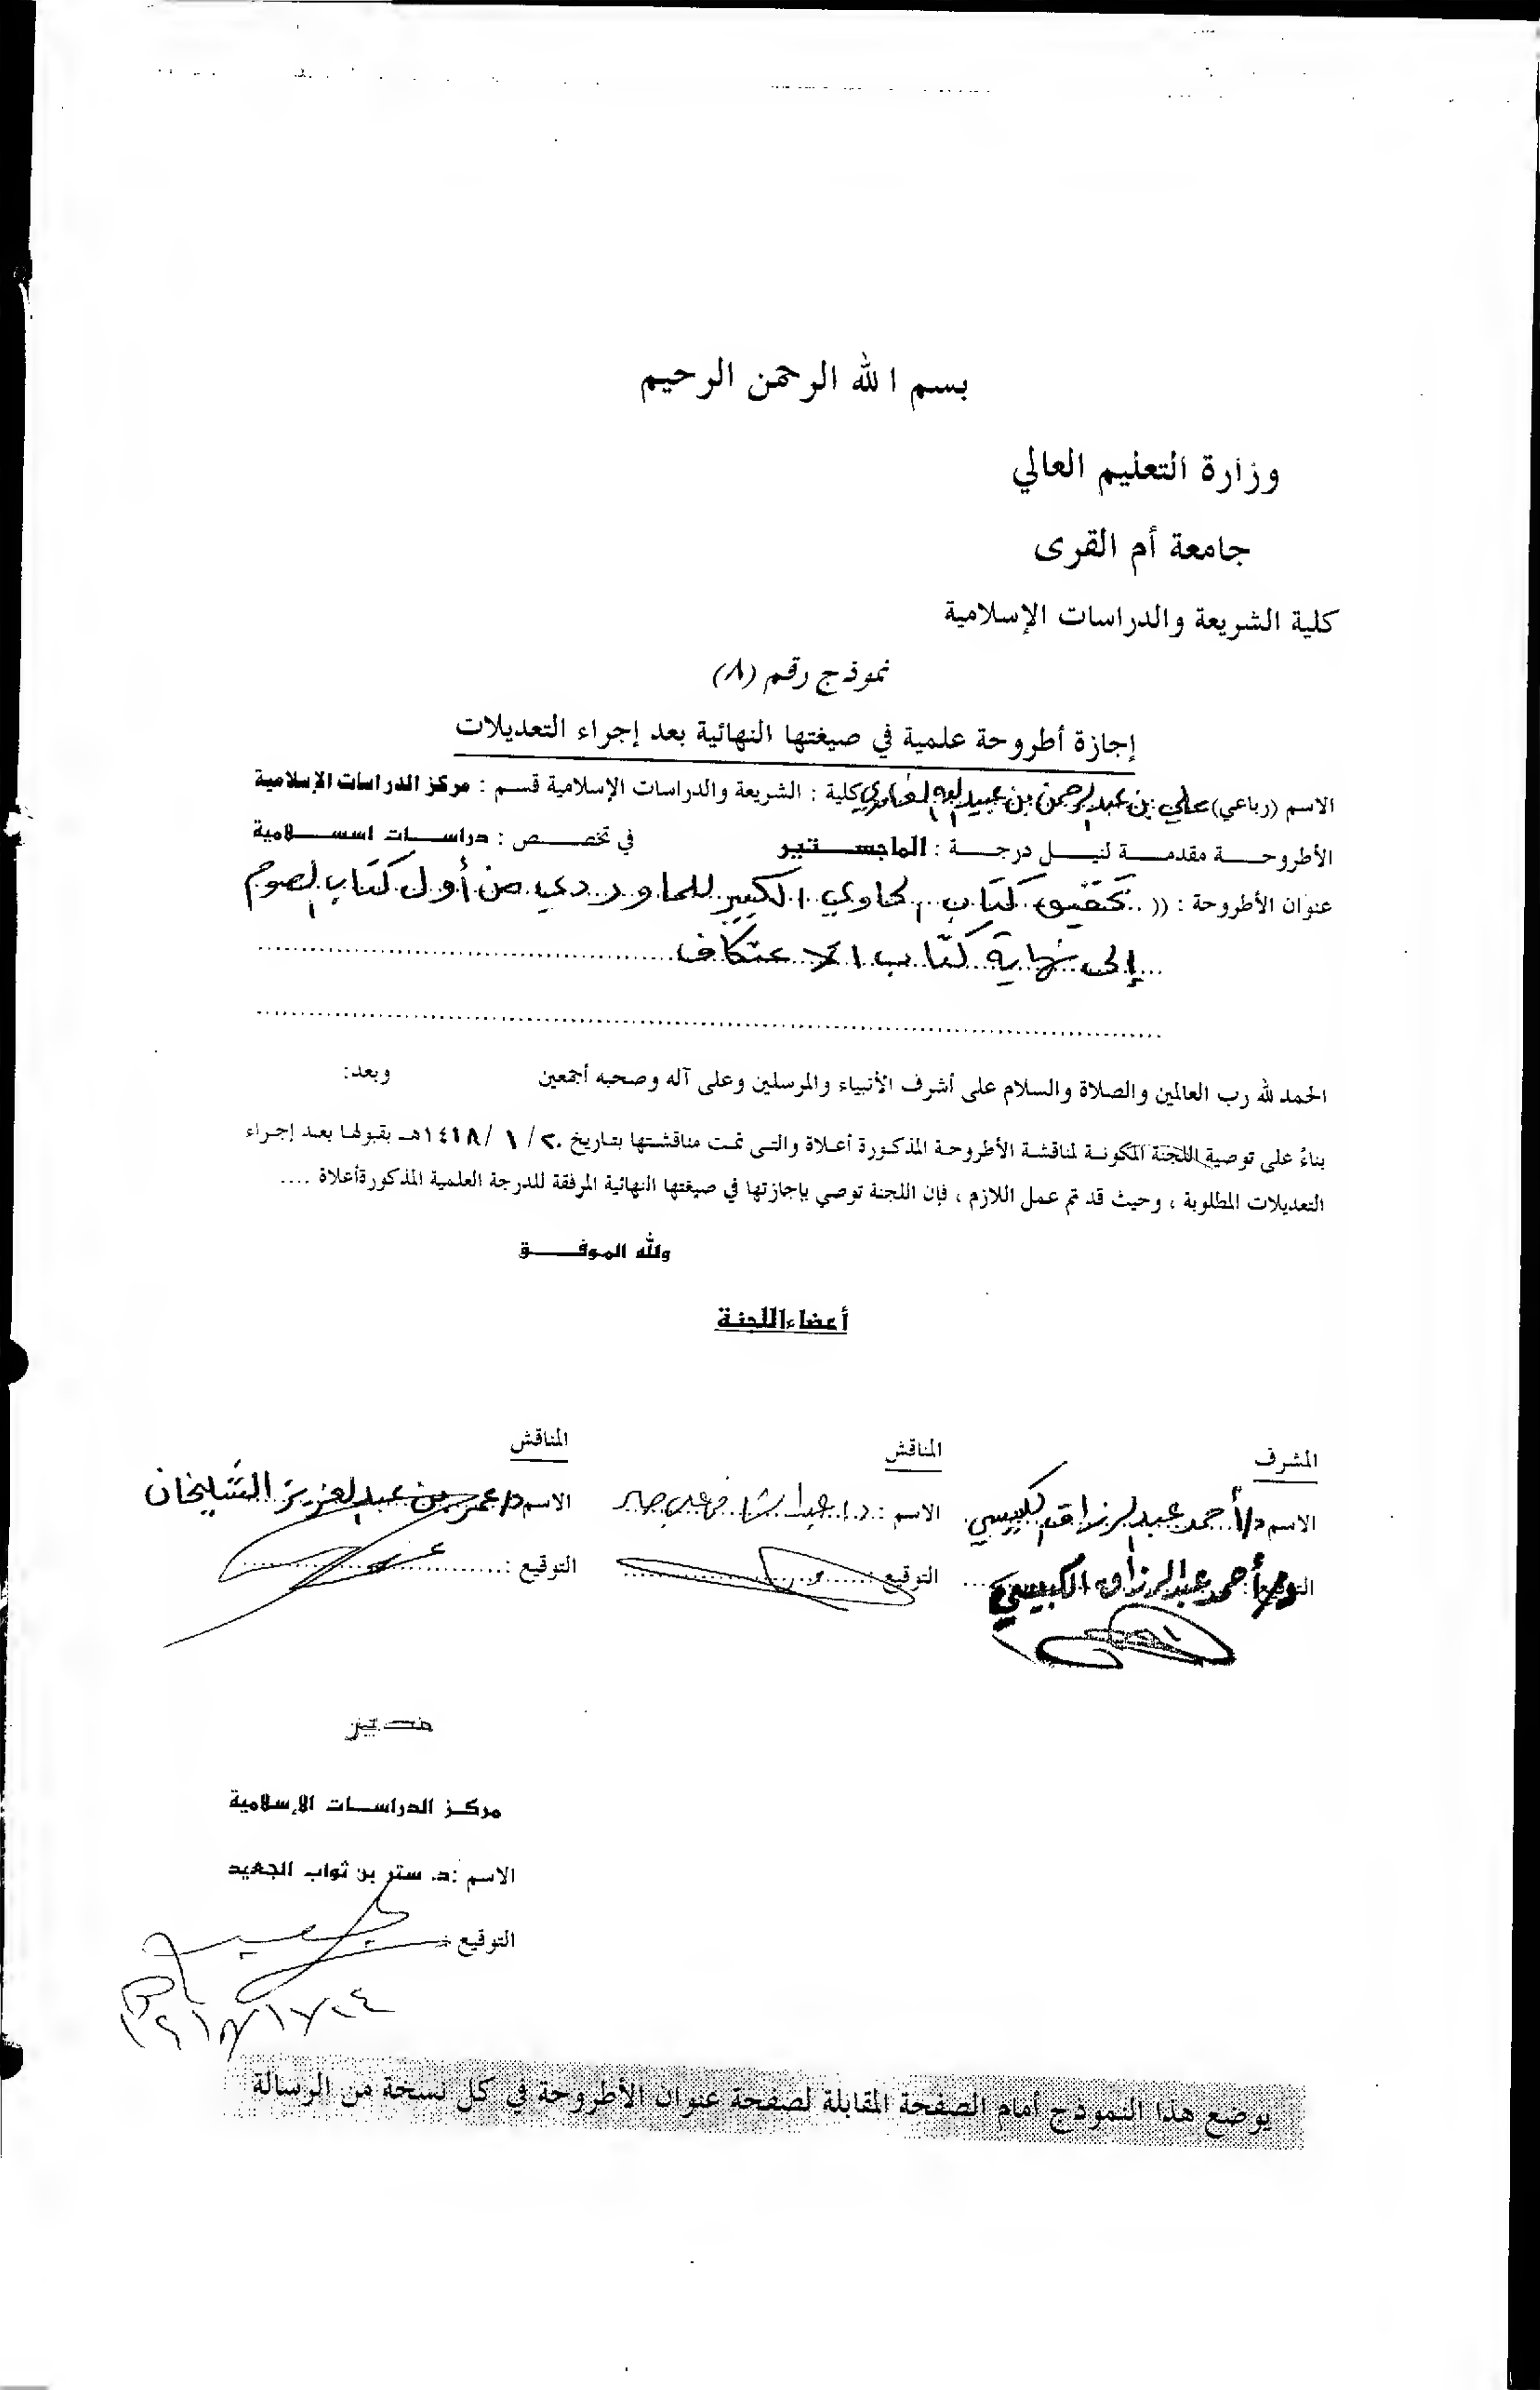 بسم الله الرحمن الرحيم
وزارة التعليم العالي
جامعة أم القرى
كلية الشريعة والدراسات الإسلامية
نموذج رقم (٨)
إجازة أطروحة علمية في صيغتها النهائية بعد إجراء التعديلات
الاسم (رباعي) علي بن عبدالرحمن بن عبيدالله كلية : الشريعة والدراسات الإسلامية قسم : مركز الدراسات الإسلامية
الأطروحة مقدمة لنيل درجة : الماجستير في تخصص : دراسات اسسلامية
عنوان الأطروحة : (( تحقيق كتاب الحاوي الكبير للماوردي من أول كتاب الصوم
إلى نهاية كتاب الاعتكاف
الحمد لله رب العالمين والصلاة والسلام على أشرف الأنبياء والمرسلين وعلى آله وصحبه أجمعين وبعد:
بناءً على توصية اللجنة المكونة لمناقشة الأطروحة المذكورة أعلاة والتي تمت مناقشتها بتاريخ ٢٠ / ١ / ١٤١٨هـ بقبولها بعد إجراء
التعديلات المطلوبة ، وحيث قد تم عمل اللازم ، فإن اللجنة توصي بإجازتها في صيغتها النهائية المرفقة للدرجة العلمية المذكورة أعلاة ....
والله الموفق
أعضاء اللجنة
المشرف المناقش المناقش
الاسم د/أحمد عبدالرزاق الكبيسي الاسم : د. عبدالله الاسم د/عمر بن عبدالعزيز الشيلخان
التوقيع : د/أحمد عبدالرزاق الكبيسي التوقيع : التوقيع :
مدير
مركز الدراسات الإسلامية
الاسم : د. ستر بن ثواب الجعيد
التوقيع :
يوضع هذا النموذج أمام الصفحة المقابلة لصفحة عنوان الأطروحة في كل نسخة من الرسالة